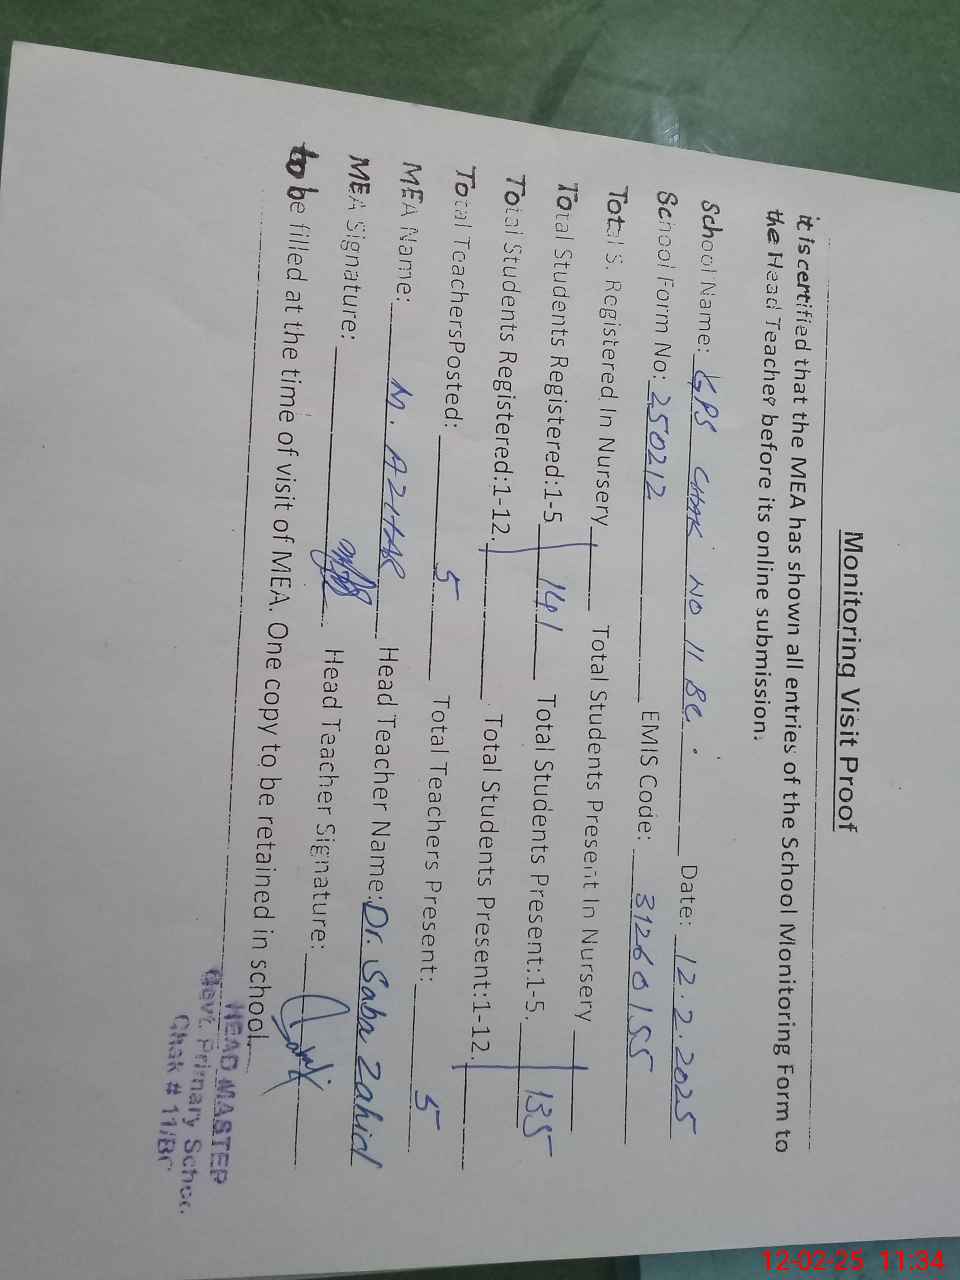 Monitoring Visit Proof
it is certified that the MEA has shown all entries of the School Monitoring Form to
the Head Teacher before its online submission.
School Name: GPS CHAK NO 11 BC. Date: 12.2.2025
School Form No: 250212 EMIS Code: 31260155
Total S. Registered In Nursery Total Students Present In Nursery
Total Students Registered:1-5 141 Total Students Present:1-5. 135
Total Students Registered:1-12. Total Students Present:1-12.
Total TeachersPosted: 5 Total Teachers Present: 5
MEA Name: M. AZHAR Head Teacher Name: Dr. Saba Zahid
MEA Signature: Head Teacher Signature:
to be filled at the time of visit of MEA. One copy to be retained in school.
HEAD MASTER
Govt. Primary School
Chak # 11/BC
12-02-25 11:34